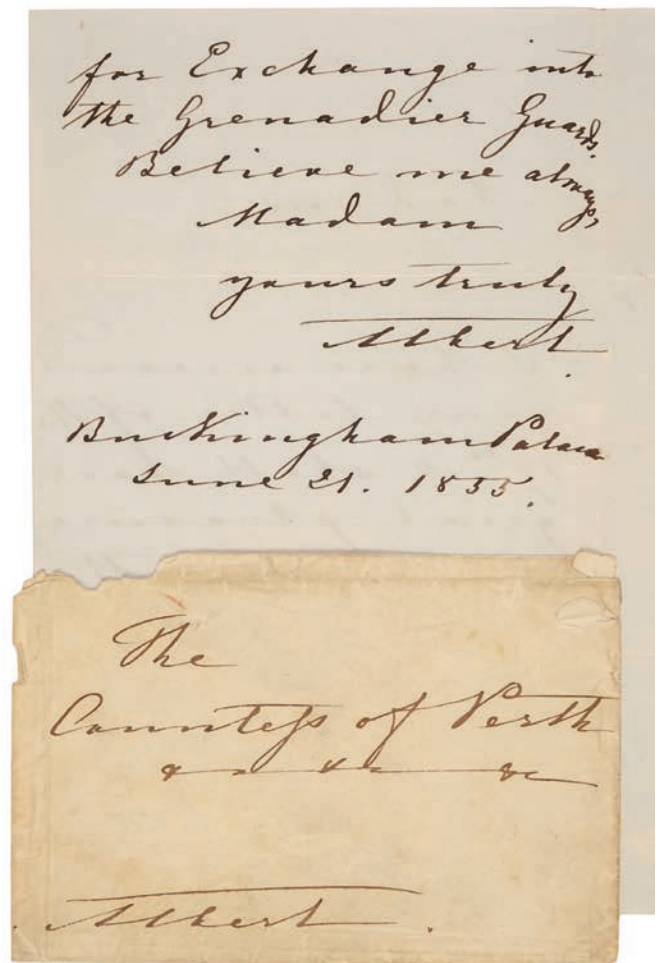 for Exchange into
the Grenadier Guards.
Believe me always,
Madam
yours truly
Albert.
Buckingham Palace
June 21. 1855.
The
Countess of Perth
&c &c &c
Albert.